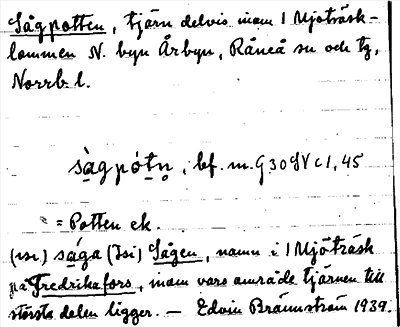 Sågpotten, tjärn delvis inom 1 Mjöträsk-
lommen N. byn Årbyn, Råneå sn och tg,
Norrb. l.
sàgpó̀tn̥, bf. m. G 30 SV c 1, 45
= Potten ek.
(in) sá̀ga (Isi) Sågen, namn i 1 Mjöträsk
på Fredrikafors, inom vars område tjärnen till
största delen ligger. — Edvin Brännström 1939.